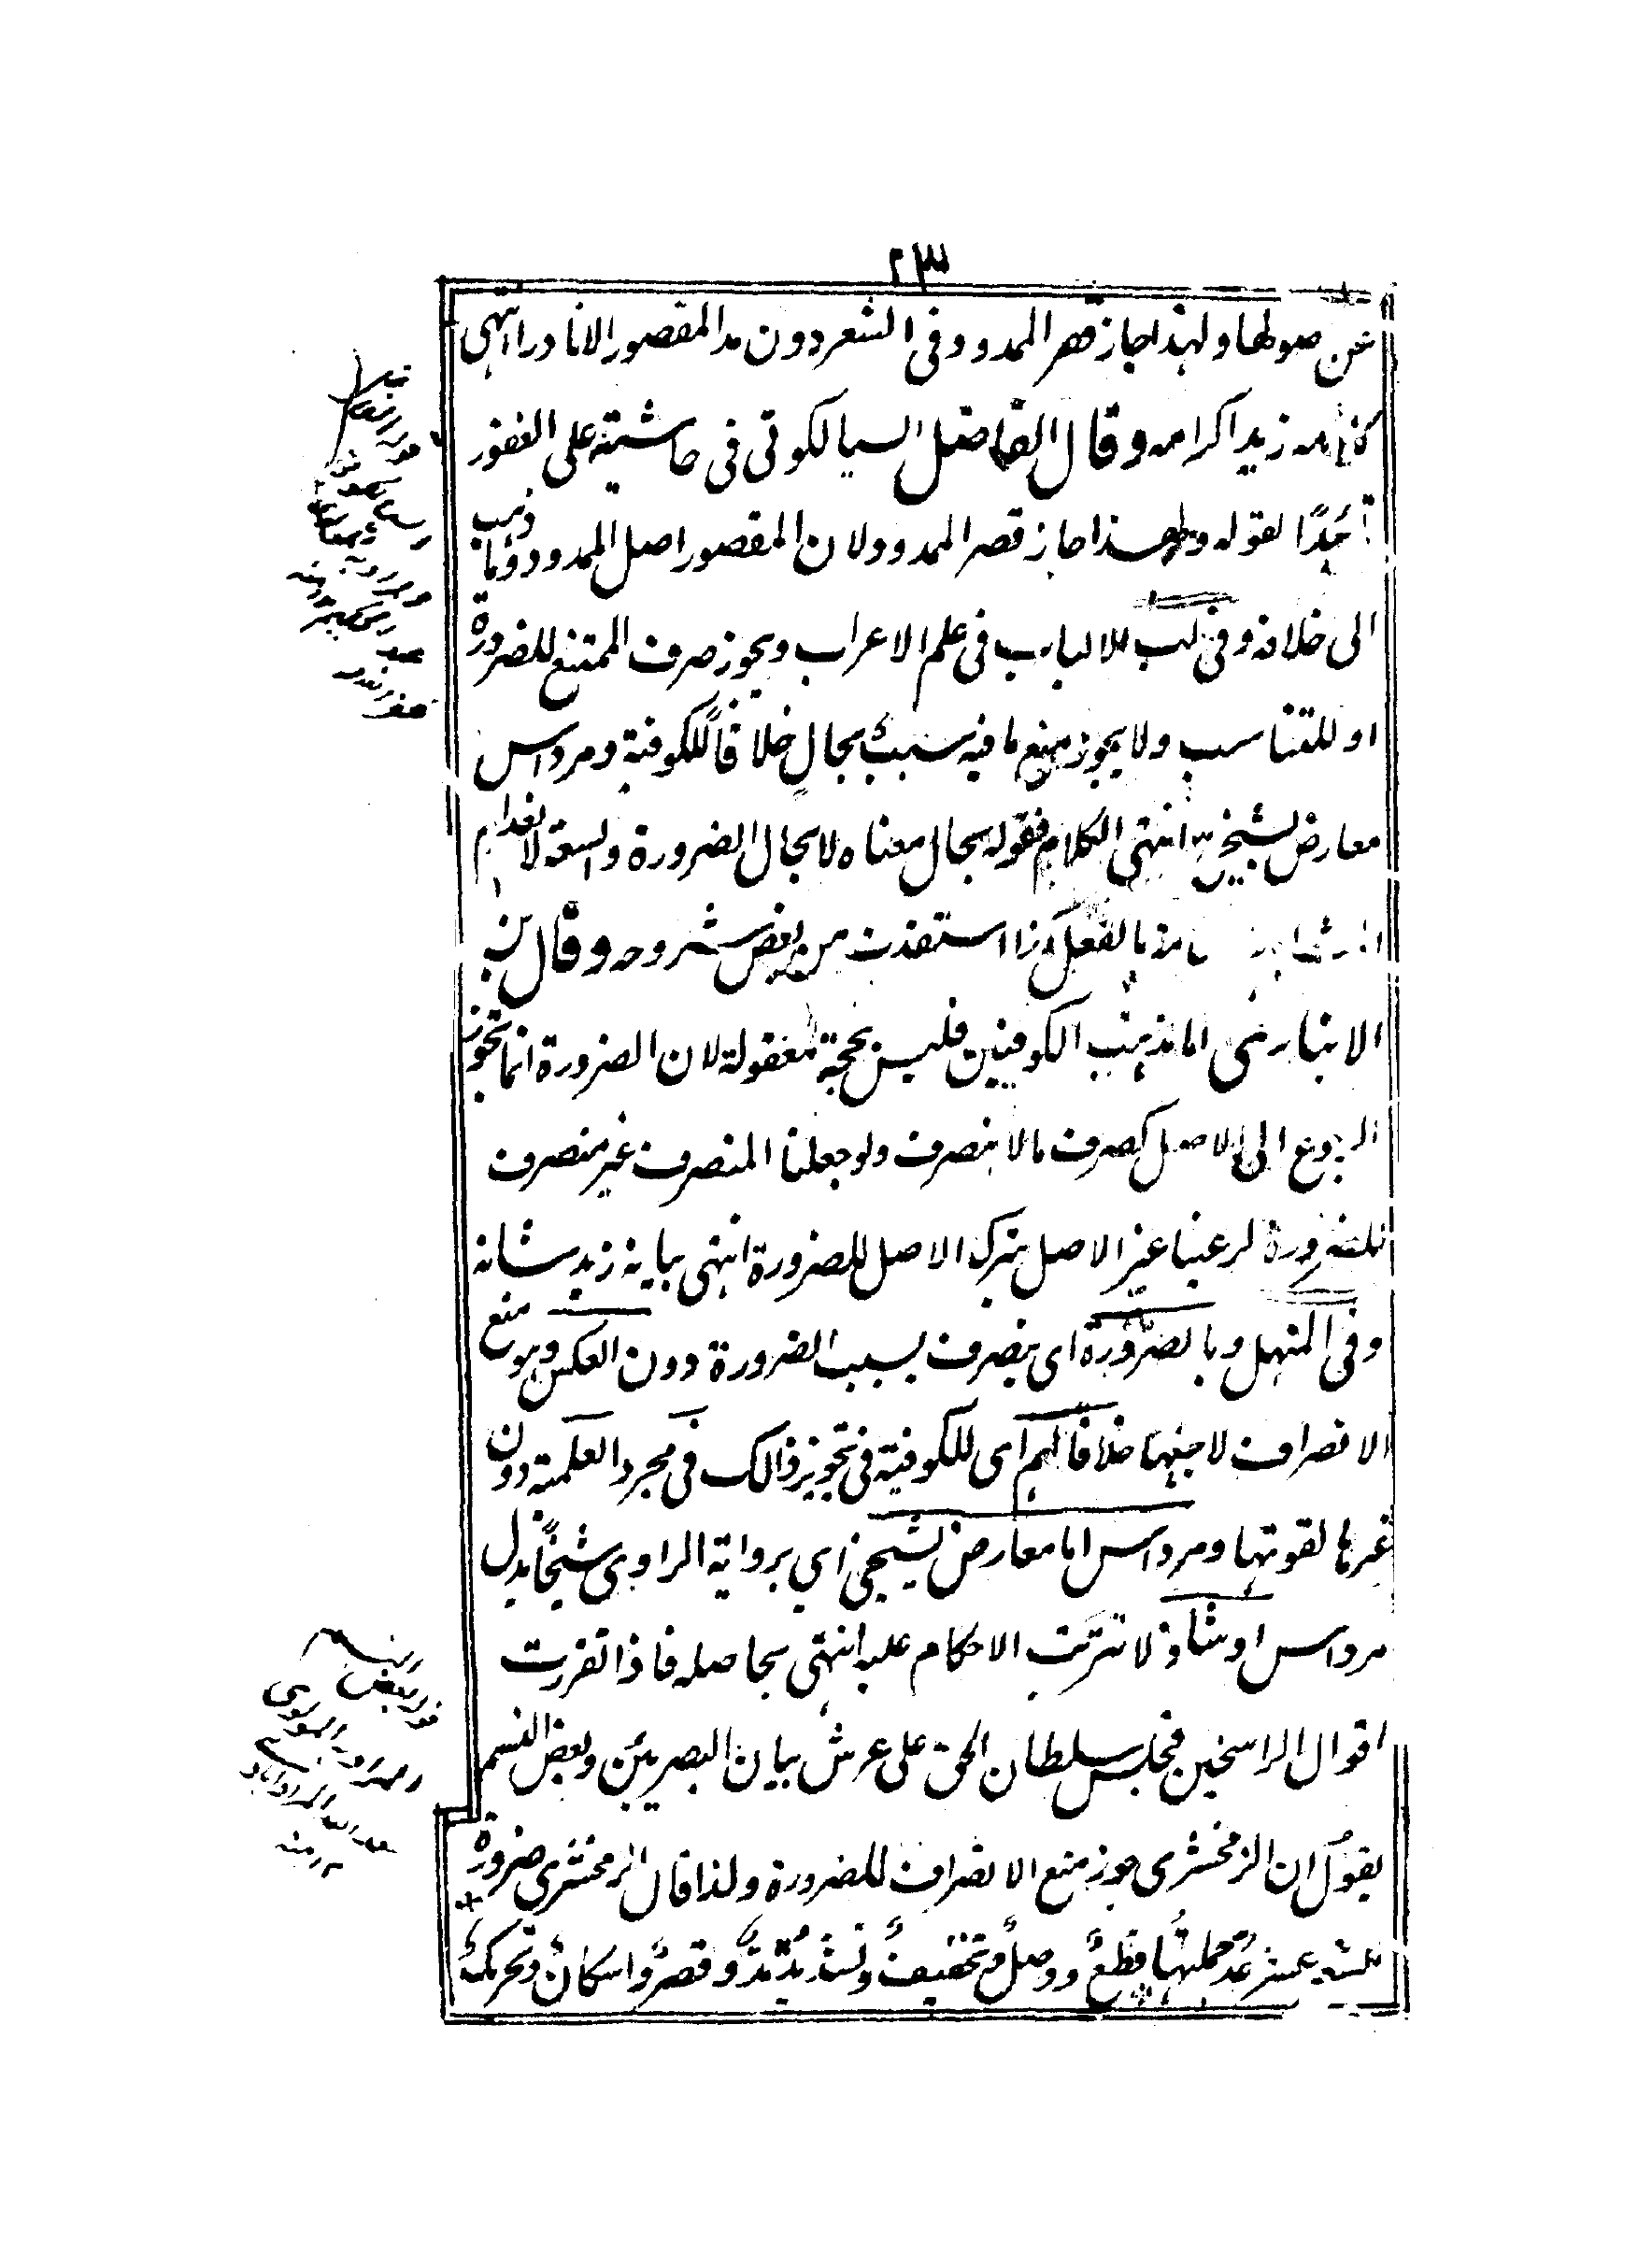 ٢٣
عن صولها ولهذا جاز قصر الممدود فى الشعر دون مد المقصور الا نادرا انتهى
كلامه زيد اكرامه وقال الفاضل السيالكوتى فى حاشيته على الغفور
تائيدًا لقوله ولهذا جاز قصر الممدود ولان المقصور اصل الممدود وما ذهب
الى خلافه وفى لب الالباب فى علم الاعراب ويجوز صرف الممتنع للضرورة
او للتناسب ولا يجوز منع ما فيه سبب بحالٍ خلافًا للكوفية ومرداس
معارض بشيخى انتهى الكلام فقوله بحال معناه لا بحال الضرورة والسعة لانعدام
بالفعل كذا استفدت من بعض شروحه وقال ابن
الانبارى اما مذهب الكوفيين فليس بحجة معقولة لان الضرورة انما تجوز
الرجوع الى الاصل كصرف ما لا ينصرف ولو جعلنا المنصرف غير منصرف
للضرورة لرعبنا عن الاصل بترك الاصل للضرورة انتهى ببيانه زيد شانه
وفى المنهل وبالضرورة اى ينصرف بسبب الضرورة دون العكس وهو منع
الانصراف لاجلها خلافًا لهم اى للكوفية فى تجويز ذالك فى مجرد العلمية دون
غيرها لقوتها ومرداس اما معارض بشيخى اى برواية الراوى شيخًا بدل
مرداس او شاذ لا تترتب الاحكام عليه انتهى بحاصله فاذا تقررت
اقوال الراسخين فجلس سلطان الحق على عرش بيان البصريين وبعض القسم
يقول ان الزمخشرى جوز منع الانصراف للضرورة ولذا قال الزمخشرى ضرورة
عشر عُدّ جملتها قطعٌ ووصلٌ وتخفيفٌ وتشديدٌ مدٌّ وقصرٌ واسكانٌ وتحريكٌ